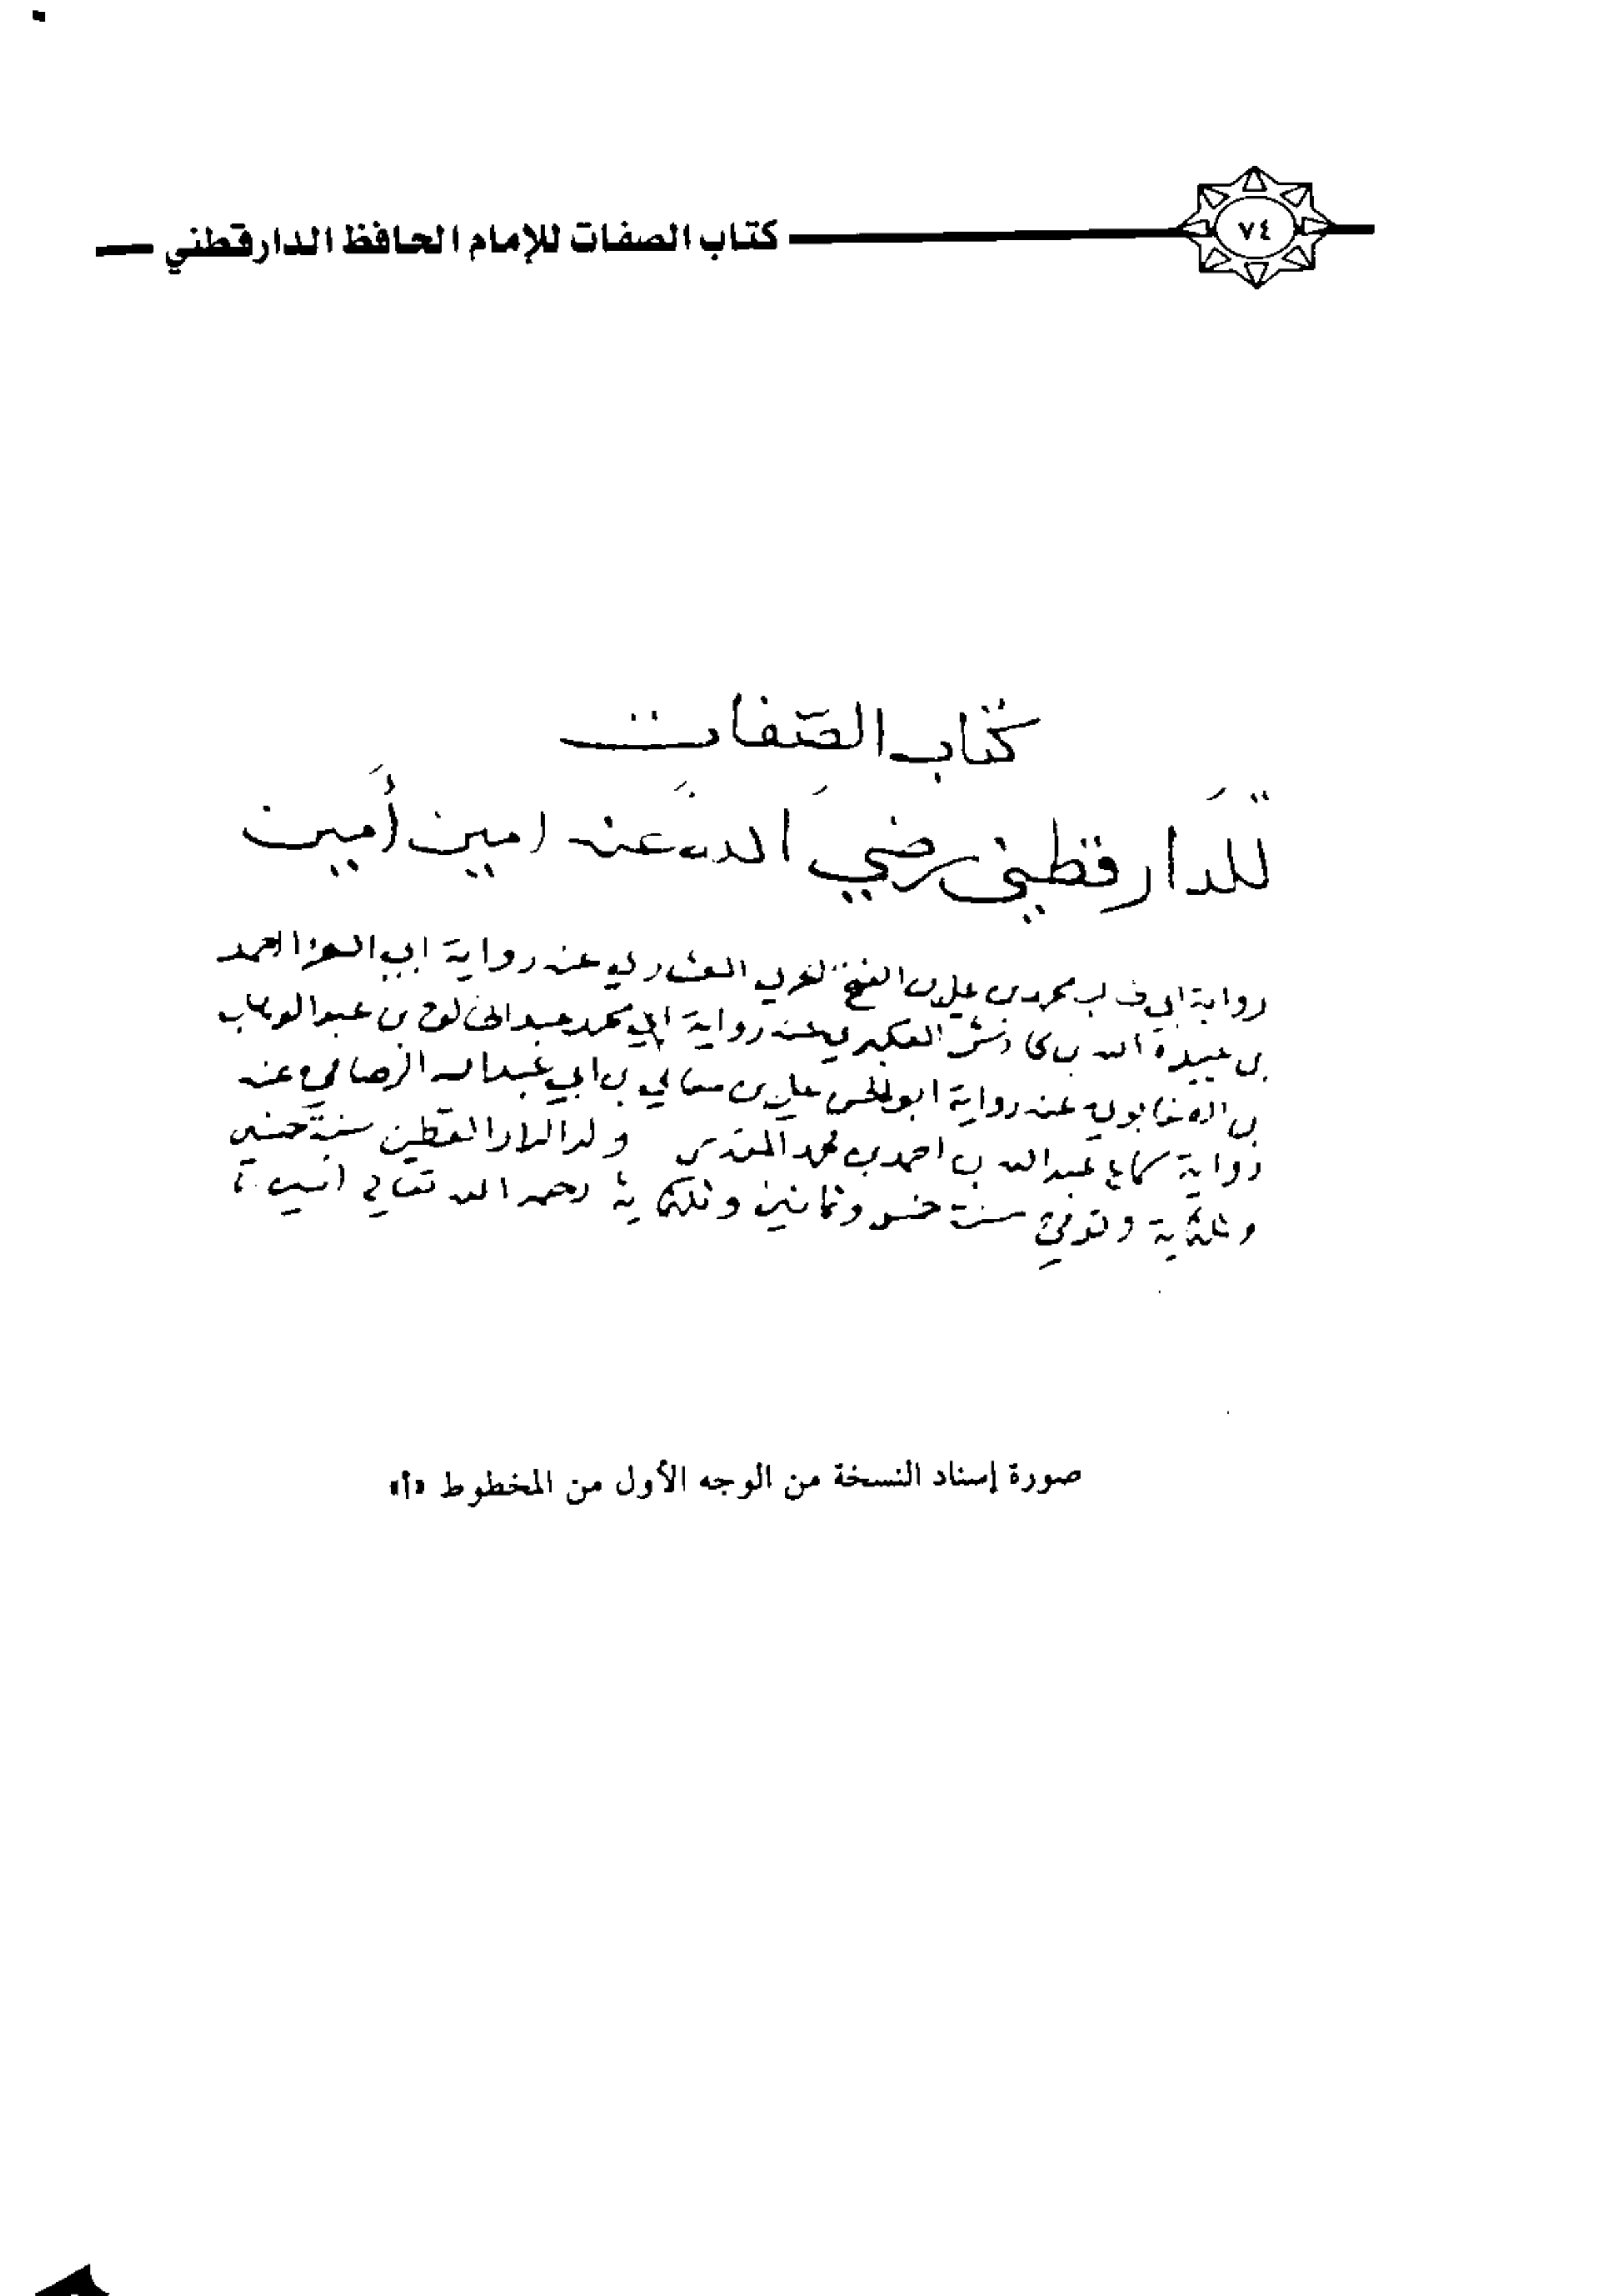 ٧٤
كتاب الصفات للإمام الحافظ الدارقطني
كتاب الصفات
للدارقطني رضي الله عنه امين أمين
رواية ابي طالب محمد بن علي بن الفتح العشاري عنه رواية ابي العز احمد
بن عبيد الله بن كادش العكبري عنه رواية ابي محمد عبد الخالق بن عبد الوهاب
بن الصابوني عنه رواية ابو الحسن علي بن معالي بن ابي عبد الله الرصافي عنه
رواية سماع عبد الله بن احمد بن محمد المقدسي ولد الدار القطني سنة خمسين
وثلثماية وتوفي سنة خمس وثمانين وثلثماية رحمه الله تعالى
صورة إسناد النسخة من الوجه الأول من المخطوط «أ»